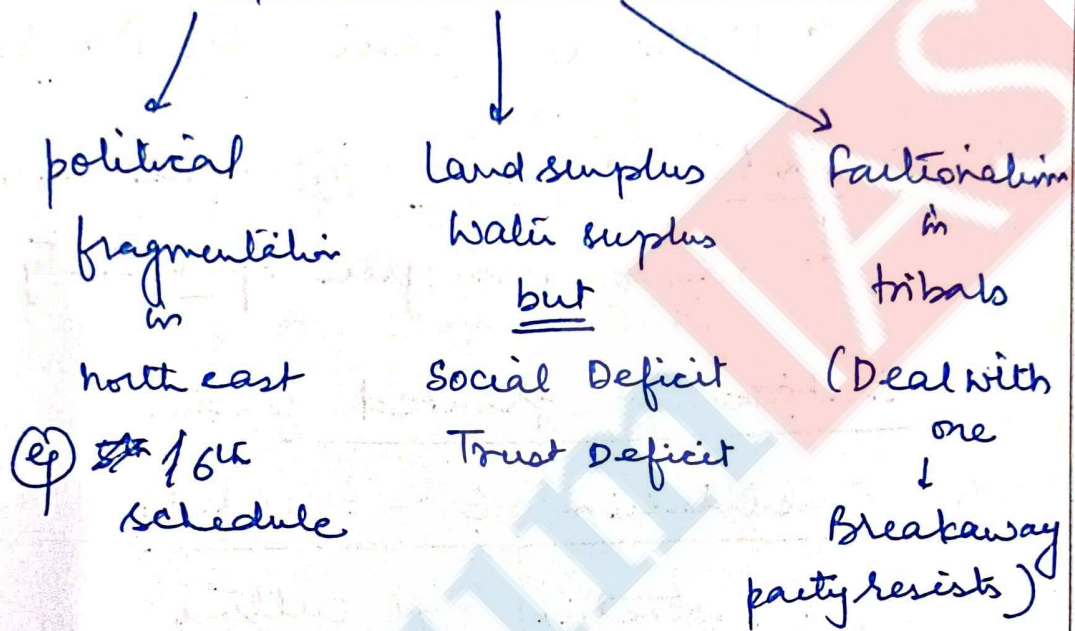 political
fragmentation
in
north east
eg 5th / 6th
schedule
Land surplus
Water suplus
but
Social Deficit
Trust Deficit
Factionalism
in
tribals
(Deal with
one
↓
Breakaway
party resists)
IAS
um